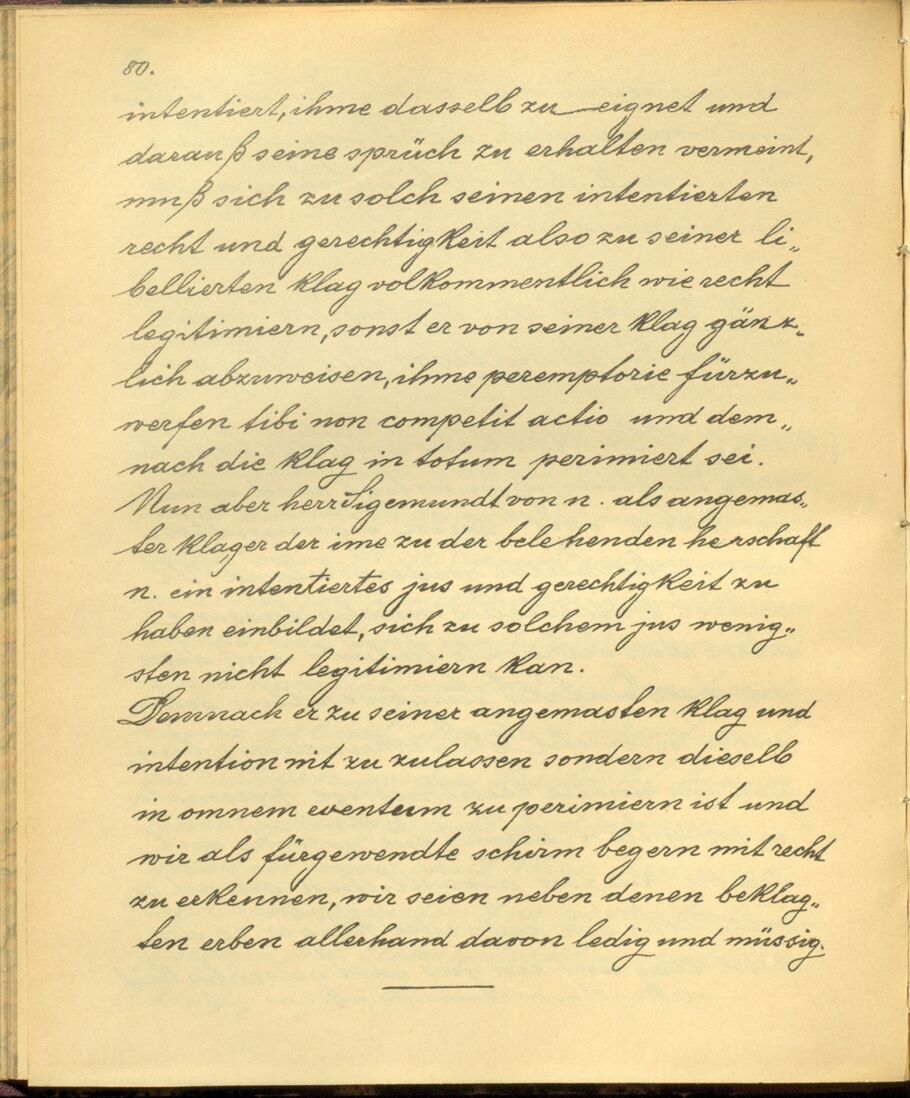 80.
intentiert, ihme dasselb zu eignet und
darauß seine sprüch zu erhalten vermeint,
muß sich zu solch seinen intentierten
recht und gerechtigkeit also zu seiner li„
bellierten klag volkommentlich wie recht
legitimiern, sonst er von seiner klag gänz„
lich abzuweisen, ihme peremptorie fürzu„
werfen tibi non competit actio und dem„
nach die klag in totum perimiert sei.
Nun aber herr Sigemundt von n. als angemas„
ter klager der ime zu der belehenden herschaft
n. ein intentiertes jus und gerechtigkeit zu
haben einbildet, sich zu solchem jus wenig„
sten nicht legitimiern kan.
Demnach er zu seiner angemasten klag und
intention nit zu zulassen sondern dieselb
in omnem eventum zu perimiern ist und
wir als fürgewendte schirm begern mit recht
zu erkennen, wir seien neben denen beklag„
ten erben allerhand davon ledig und müssig.